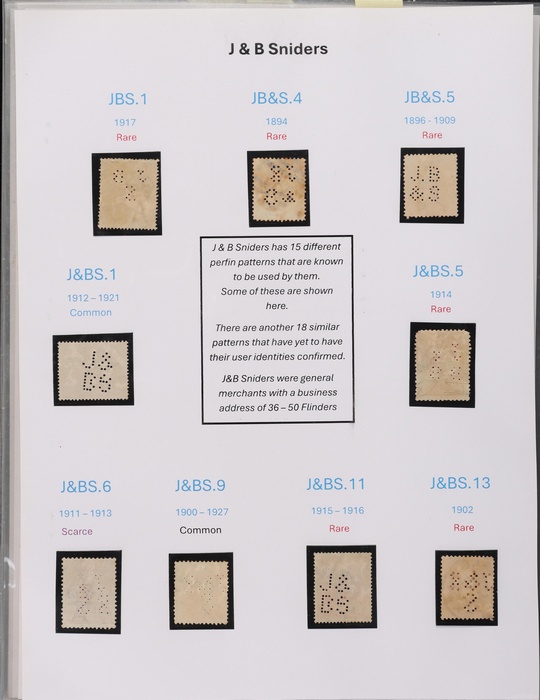 J & B Sniders
JBS.1
1917
Rare
JB&S.4
1894
Rare
JB&S.5
1896 - 1909
Rare
J.B
&S
J & B Sniders has 15 different
perfin patterns that are known
to be used by them.
Some of these are shown
here.
There are another 18 similar
patterns that have yet to have
their user identities confirmed.
J&B Sniders were general
merchants with a business
address of 36 – 50 Flinders
J&BS.1
1912 – 1921
Common
J&
BS
J&BS.5
1914
Rare
J&BS.6
1911 – 1913
Scarce
J&BS.9
1900 – 1927
Common
J&BS.11
1915 – 1916
Rare
J&
BS
J&BS.13
1902
Rare